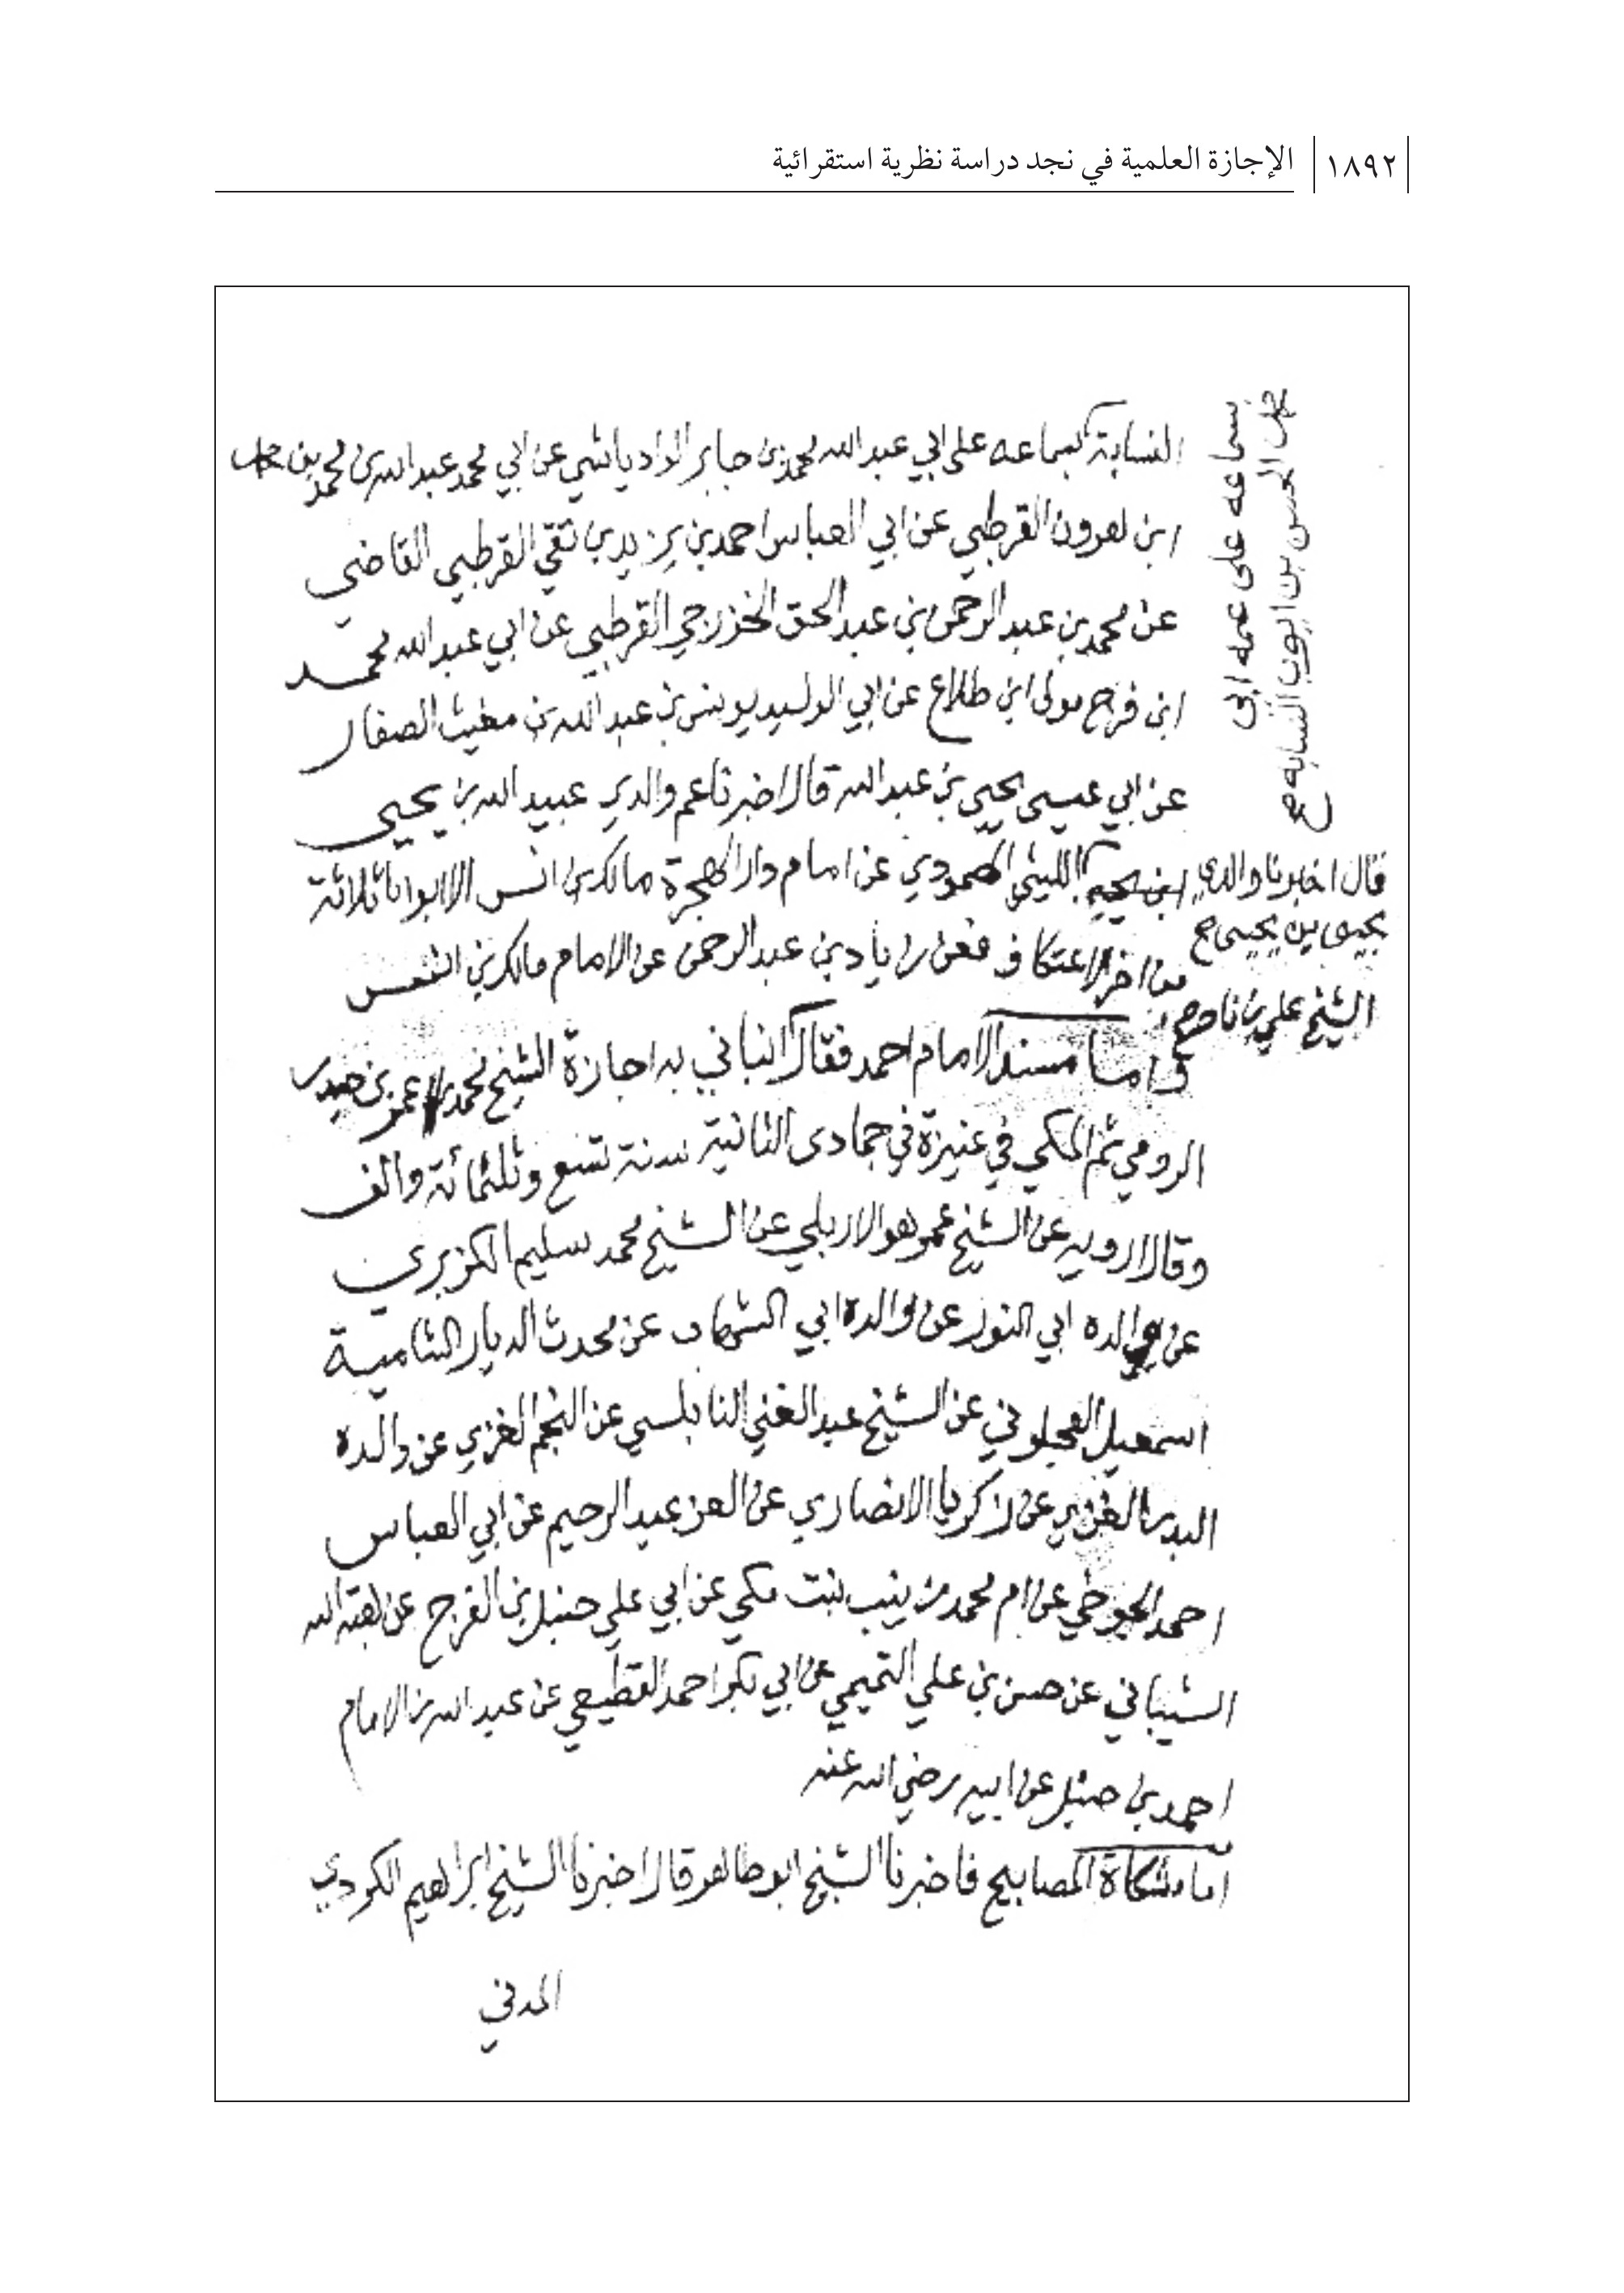 ١٨٩٢
الإجازة العلمية في نجد دراسة نظرية استقرائية
النسابة كسماعه على ابي عبد الله محمد بن جابر الوادياشي عن ابي محمد عبد الله بن محمد بن
ابن هرون القرطبي عن ابي العباس احمد بن يزيد بن تقي القرطبي القاضي
عن محمد بن عبد الرحمن بن عبد الحق الخزرجي القرطبي عن ابي عبد الله محمد
ابن فرج مولى ابن طلاع عن ابي الوليد يونس بن عبد الله بن مغيث الصفار
عن ابي عيسى يحيى بن عبد الله قال اخبرنا عم والدي عبيد الله بن يحيى
ابن يحيى الليثي المصمودي عن امام دار الهجرة مالك بن انس الا ابوابا ثلاثة
من اخر الاعتكاف فعن زياد بن عبد الرحمن عن الامام مالك بن انس
واما مسند الامام احمد فقال انباني به اجازة الشيخ محمد عمر بن حيدر
الرومي ثم المكي في عنيزة في جمادى الثانية سنة تسع وثلثمائة والف
وقال ارويه عن الشيخ عمر هو الاربلي عن الشيخ محمد سليم الكزبري
عن والده ابي النور عن والده ابي الشهاب عن محدث الديار الشامية
اسمعيل العجلوني عن الشيخ عبد الغني النابلسي عن النجم الغزي عن والده
البدر الغزي عن زكريا الانصاري عن العز عبد الرحيم عن ابي العباس
احمد الجوخي عن ام محمد زينب بنت مكي عن ابي علي حنبل بن الفرج عن هبة الله
الشيباني عن حسن بن علي التميمي عن ابي بكر احمد القطيعي عن عبد الله بن الامام
احمد بن حنبل عن ابيه رضي الله عنه
اما مشكاة المصابيح فاخبرنا الشيخ ابو طاهر قال اخبرنا الشيخ ابراهيم الكردي
المدني
سماعه على عمه ابي
الحسن بن ايوب النسابه ح
قال اخبرنا والدي
يحيى بن يحيى ح
الشيخ علي بن ناصر